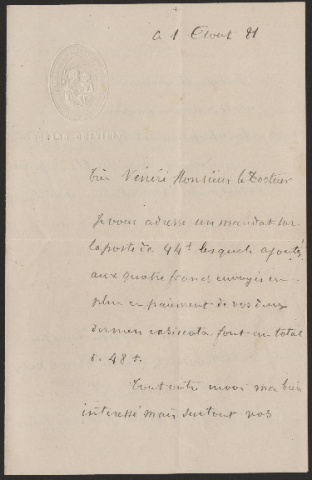 Très Vénéré Monsieur le Docteur
Je vous adresse un mandat sur
la poste de 44 f. lesquels ajoutés
aux quatre francs envoyés en
plus en paiement de vos deux
derniers font un total
d. 48 f.
Tout votre envoi m'a bien
intéressé mais surtout vos